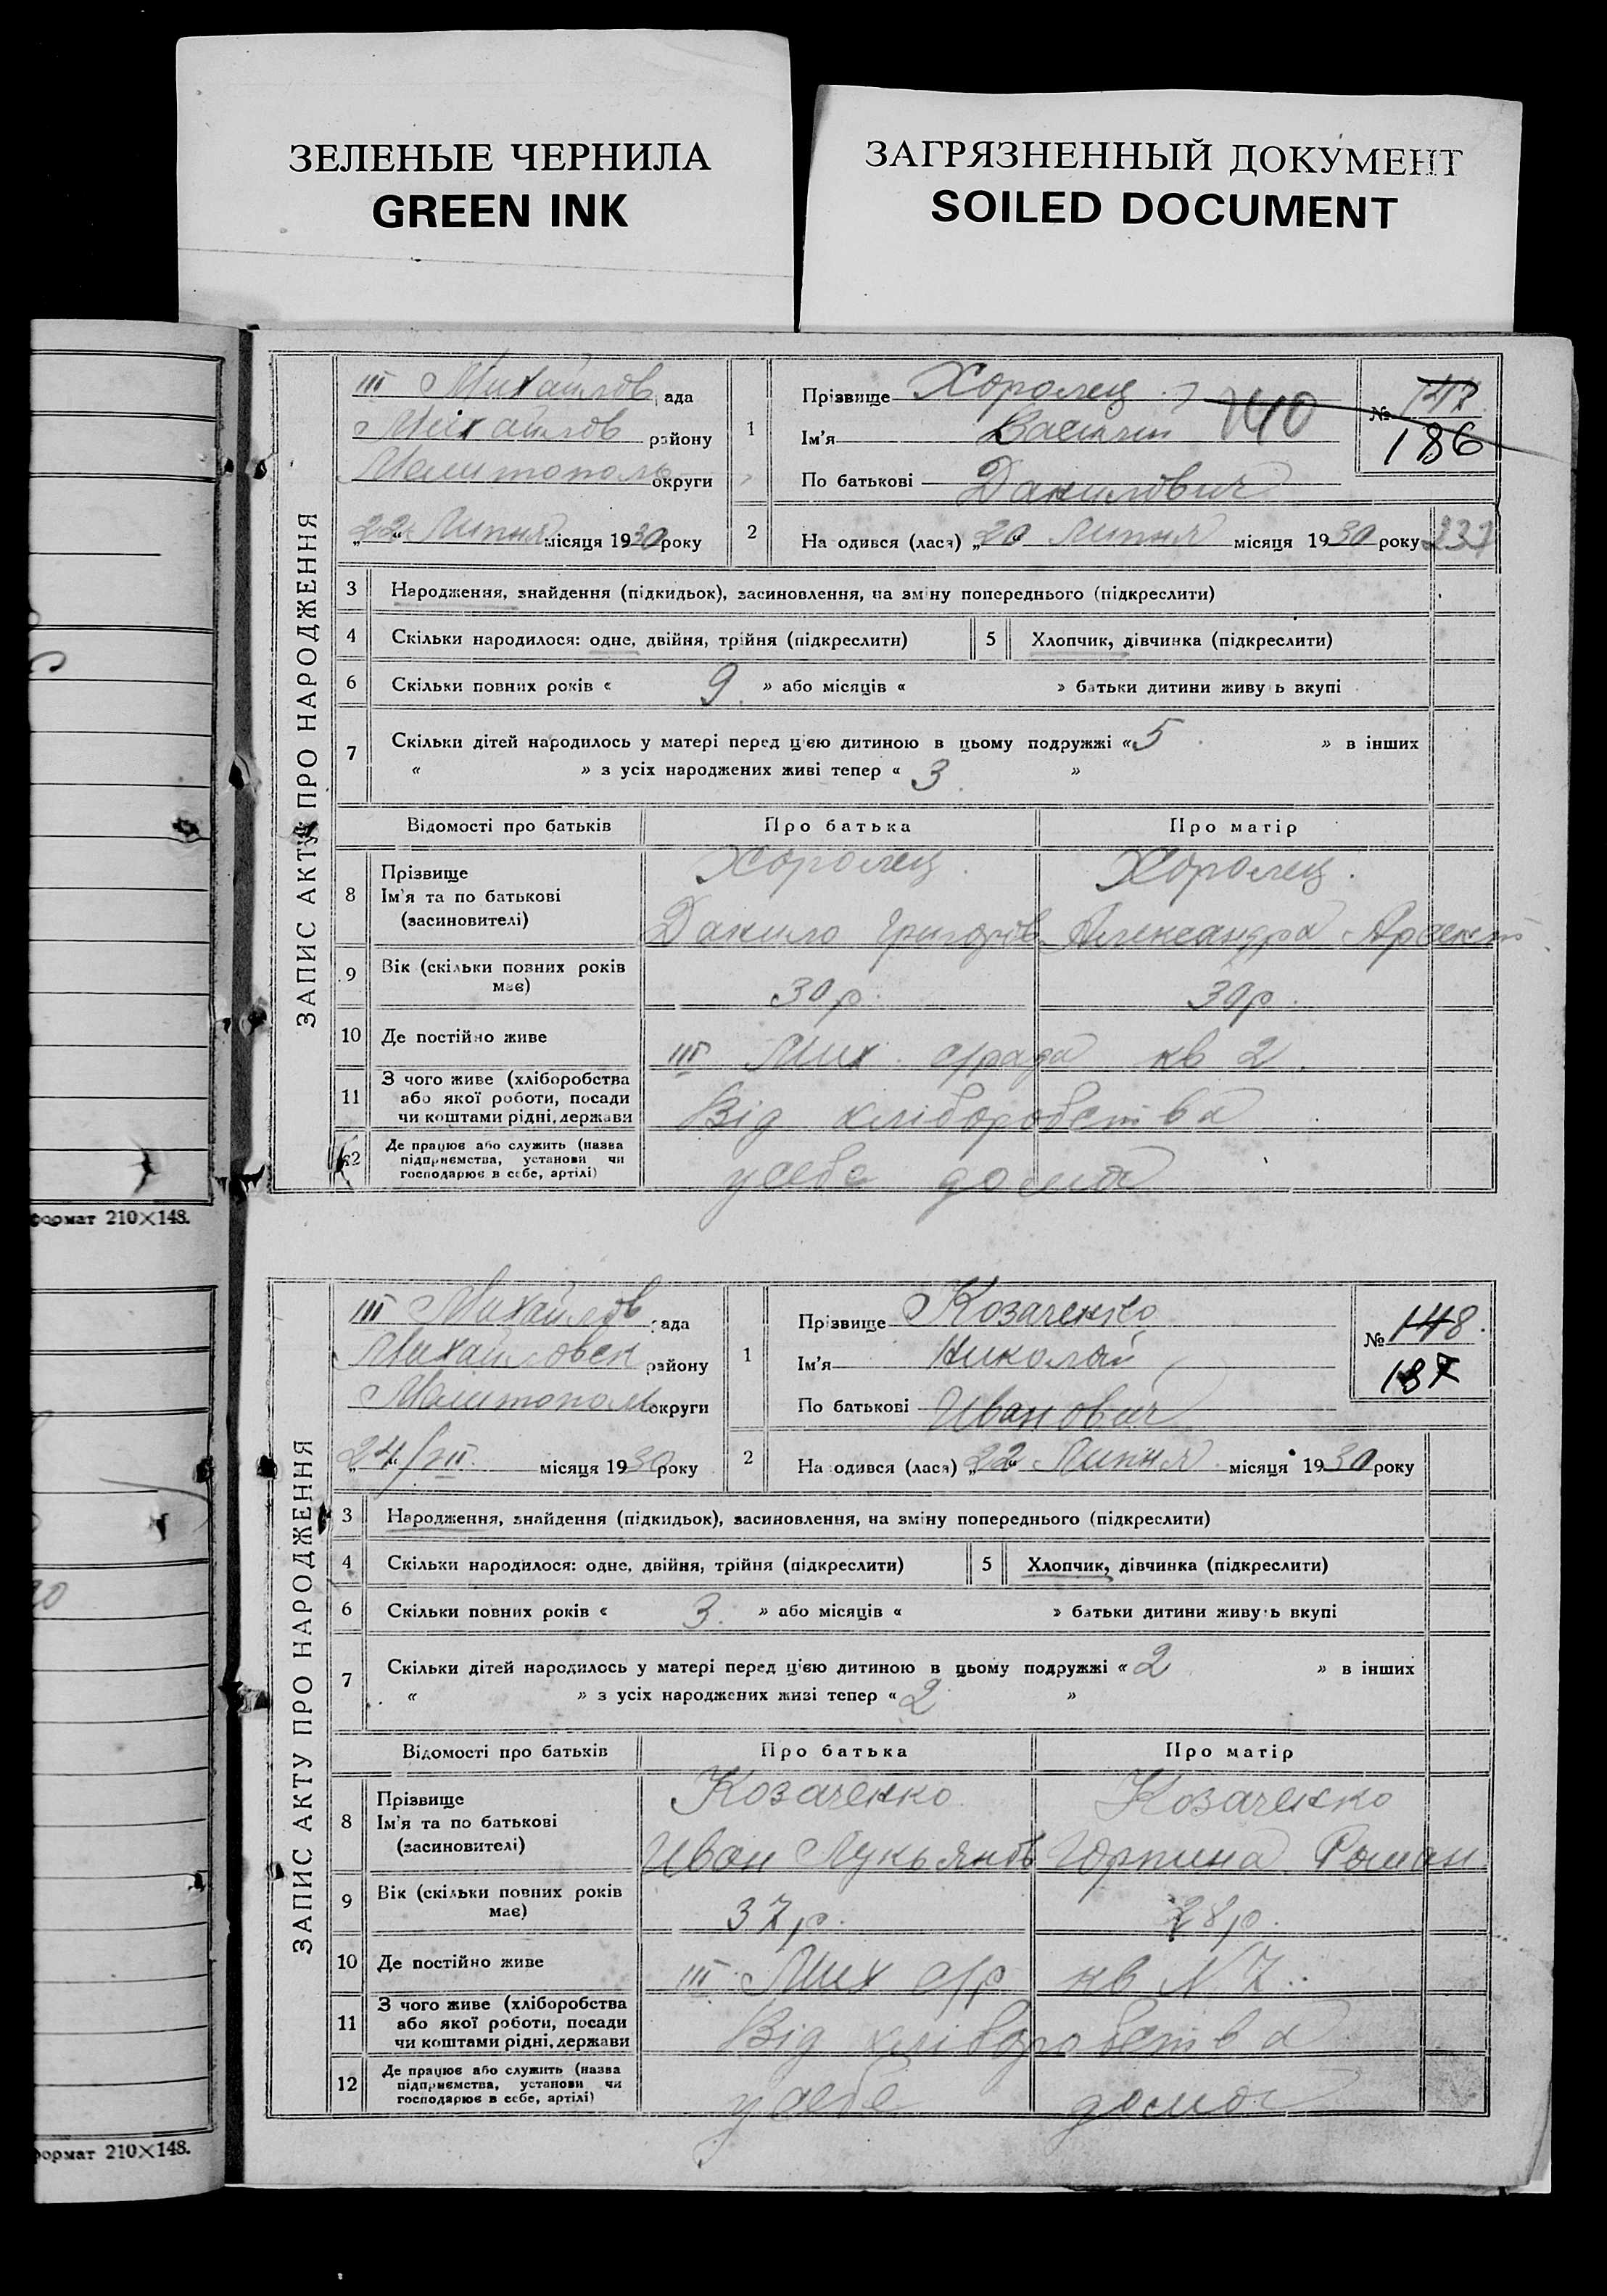 ЗЕЛЕНЫЕ ЧЕРНИЛА
GREEN INK
ЗАГРЯЗНЕННЫЙ ДОКУМЕНТ
SOILED DOCUMENT
формат 210×148.
формат 210×148.
ЗАПИС АКТУ ПРО НАРОДЖЕННЯ
III Михайлов рада
Михайлов району
Мелитополь округи
„22“ Липня місяця 1930 року
1
Прізвище Хоролец
Ім'я Василий
По батькові Данилович
740
№ 147
186
2
Народився (лася) „20“ Липня місяця 1930 року
237
3 Народження, знайдення (підкидьок), засиновлення, на зміну попереднього (підкреслити)
4 Скільки народилося: одне, двійня, трійня (підкреслити) 5 Хлопчик, дівчинка (підкреслити)
6 Скільки повних років « 9 » або місяців « » батьки дитини живуть вкупі
7 Скільки дітей народилось у матері перед цією дитиною в цьому подружжі «5 » в інших
« » з усіх народжених живі тепер « 3 »
Відомості про батьків Про батька Про матір
8 Прізвище
Ім'я та по батькові
(засиновителі)
Хоролец Хоролец
Данило Григорів Александра Арсент
9 Вік (скільки повних років має) 30 р. 30 р.
10 Де постійно живе III Мих. с/рада кв 2.
11 З чого живе (хліборобства
або якої роботи, посади
чи коштами рідні, держави
Від хліборобства
12 Де працює або служить (назва
підприємства, установи чи
господарює в себе, артілі)
у себе дома
ЗАПИС АКТУ ПРО НАРОДЖЕННЯ
III Михайлов рада
Михайловск району
Мелитопол округи
„24/VII місяця 1930 року
1
Прізвище Козаченко
Ім'я Николай
По батькові Иванович
№ 148.
187
2
Народився (лася) „22“ Липня місяця 1930 року
3 Народження, знайдення (підкидьок), засиновлення, на зміну попереднього (підкреслити)
4 Скільки народилося: одне, двійня, трійня (підкреслити) 5 Хлопчик, дівчинка (підкреслити)
6 Скільки повних років « 3. » або місяців « » батьки дитини живуть вкупі
7 Скільки дітей народилось у матері перед цією дитиною в цьому подружжі «2 » в інших
« » з усіх народжених живі тепер «2 »
Відомості про батьків Про батька Про матір
8 Прізвище
Ім'я та по батькові
(засиновителі)
Козаченко Козаченко
Иван Лукьянов Юрпина Роман
9 Вік (скільки повних років має) 37 р. 28 р.
10 Де постійно живе III Мих с/р кв N 7.
11 З чого живе (хліборобства
або якої роботи, посади
чи коштами рідні, держави
Від хліборобства
12 Де працює або служить (назва
підприємства, установи чи
господарює в себе, артілі)
у себе дома